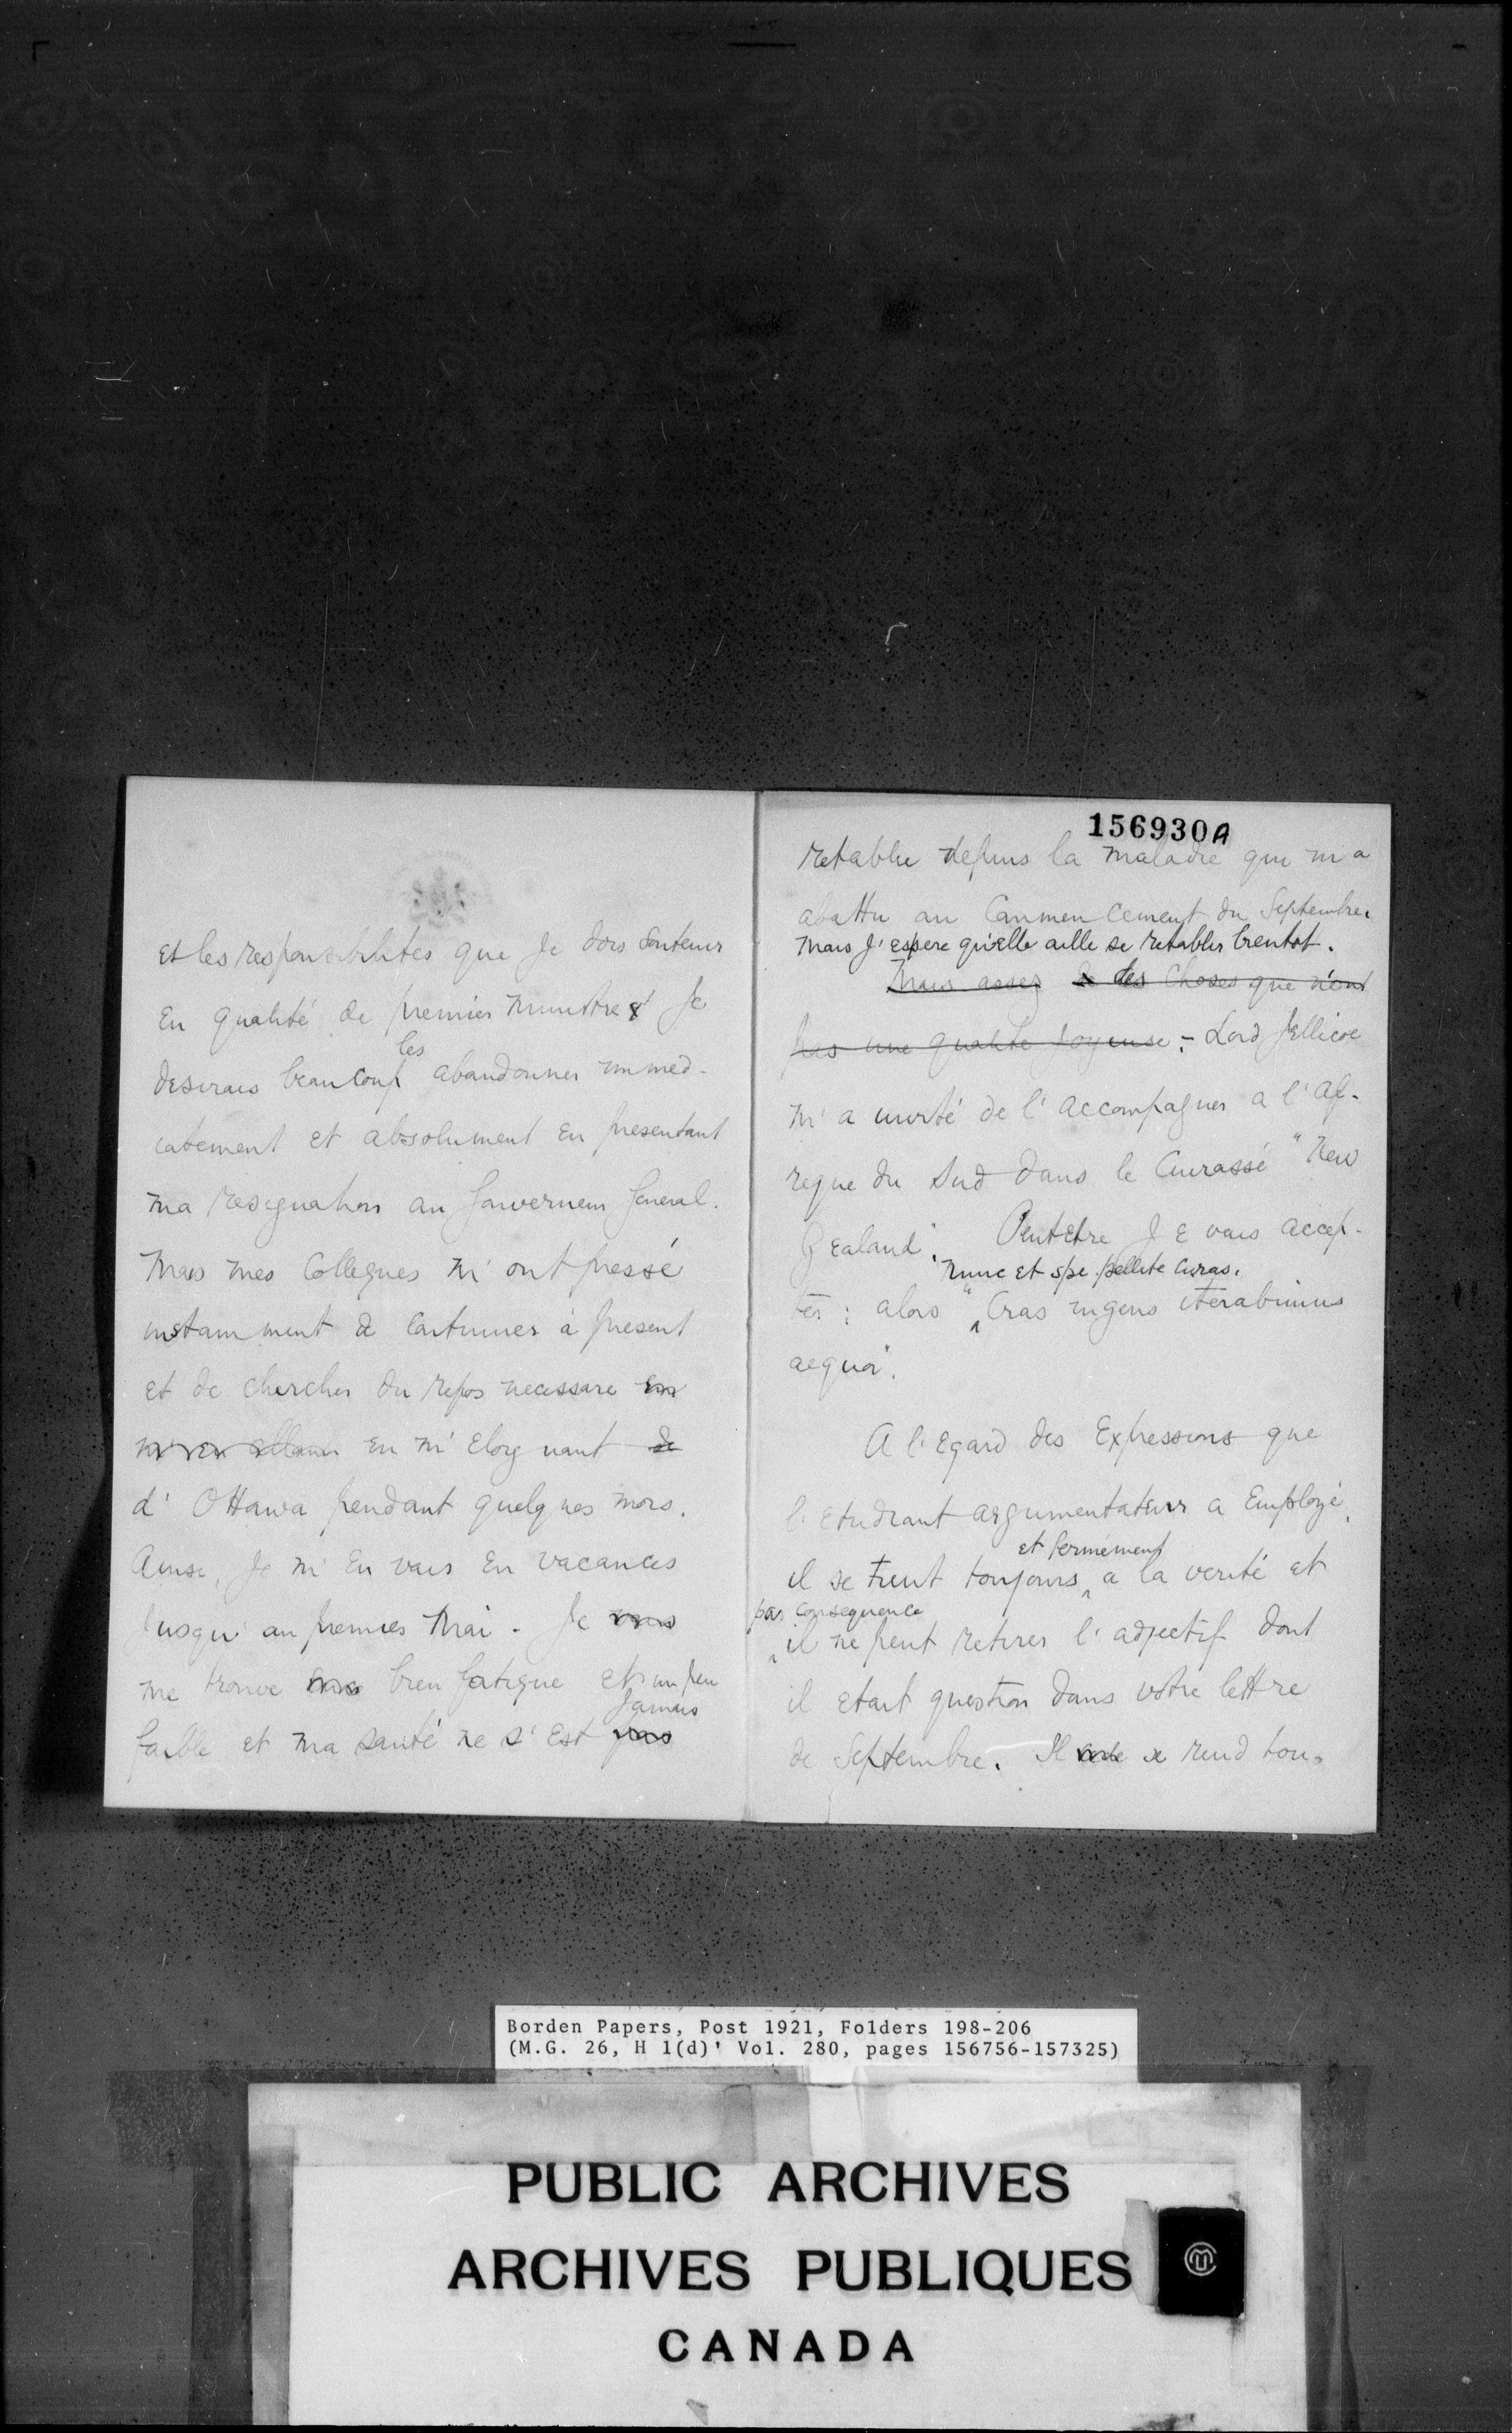 et les responsibilités que Je dois soutenir
En qualité de premier ministre & Je
les
desirais beaucoup abandonner immed-
iatement et absolument en presentant
ma resignation au Gouverneur General.
Mais mes Collegues m'ont pressé
instamment de Continuer à present
et de chercher du repos necessaire en
m'en allant en m'eloignant de
d'Ottawa pendant quelques mois.
Ainsi, Je m'En vais En vacances
Jusqu'au premier Mai. Je vais
me trouve bien fatigue et un peu
Jamais
faible et ma santé ne s'Est pas
156930A
retablie depuis la maladie qui m'a
abattu au Commencement du Septembre.
Mais J'espere qu'elle aille se retablir bientot.
Mais assez de des Choses que n'ont
pas une qualité joyeuse. - Lord Jellicoe
m'a invité de l'accompagner a l'Af-
rique du Sud dans le Cuirassé "New
Zealand". Peutetre JE vais accep-
nunc et spe pellite curas.
ter: alors "Cras ingens iterabimus
aequor".
A l'Egard des Expressions que
l'Etudiant argumentateur a Employé,
et fermement
il se tient toujours a la verité et
par consequence
il ne peut retirer l'adjectif dont
il etait question dans votre lettre
de Septembre. Il se rend tou-
Borden Papers, Post 1921, Folders 198-206
(M.G. 26, H 1(d)' Vol. 280, pages 156756-157325)
PUBLIC ARCHIVES
ARCHIVES PUBLIQUES
CANADA